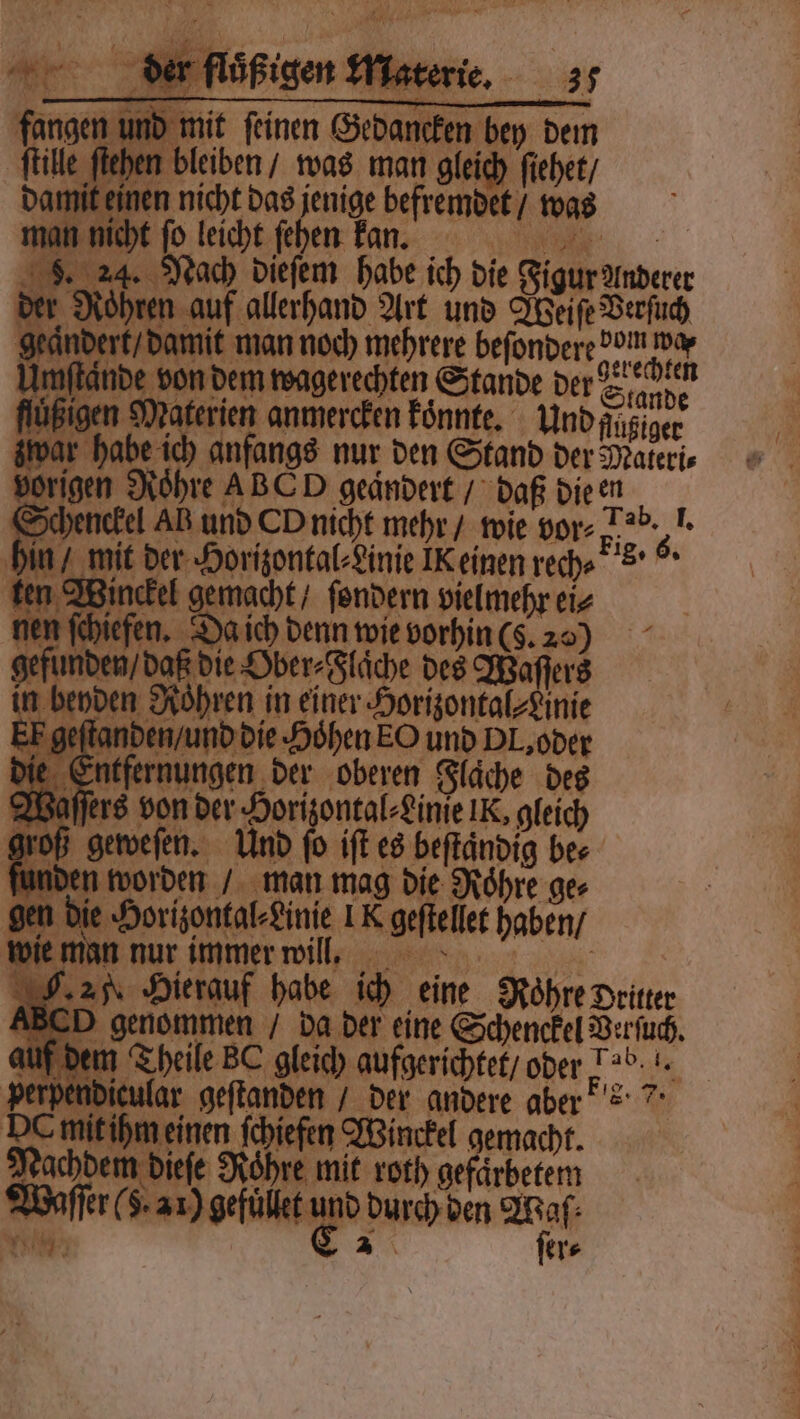 der flüßigen Materie. 35
fangen und mit seinen Gedancken bey dem
stille stehen bleiben / was man gleich siehet /
damit einen nicht das jenige befremdet / was
man nicht so leicht sehen kan.
§. 24. Nach diesem habe ich die Figur
der Röhren auf allerhand Art und Weise
geändert / damit man noch mehrere besondere
Umstände von dem wagerechten Stande der
flüßigen Materien anmercken könnte. Und
zwar habe ich anfangs nur den Stand der
vorigen Röhre ABCD geändert / daß die
Schenckel AB und CD nicht mehr / wie vor-
hin / mit der Horizontal-Linie IK einen rech-
ten Winckel gemacht / sondern vielmehr ei-
nen schiefen. Da ich denn wie vorhin (§. 20)
gefunden / daß die Ober-Fläche des Wassers
in beyden Röhren in einer Horizontal-Linie
EF gestanden / und die Höhen EO und DL, oder
die Entfernungen der oberen Fläche des
Wassers von der Horizontal-Linie IK, gleich
groß gewesen. Und so ist es beständig be-
funden worden / man mag die Röhre ge-
gen die Horizontal-Linie IK gestellet haben /
wie man nur immer will.
Anderer
Versuch
vom wa-
gerechten
Stande
flüßiger
Materi-
en
Tab. I.
Fig. 6.
§. 25. Hierauf habe ich eine Röhre
ABCD genommen / da der eine Schenckel
auf dem Theile BC gleich aufgerichtet / oder
perpendicular gestanden / der andere aber
DC mit ihm einen schiefen Winckel gemacht.
Nachdem diese Röhre mit roth gefärbetem
Wasser (§. 21) gefüllet und durch den Was-
Dritter
Versuch.
Tab. I.
Fig. 7.
C 2 ser-